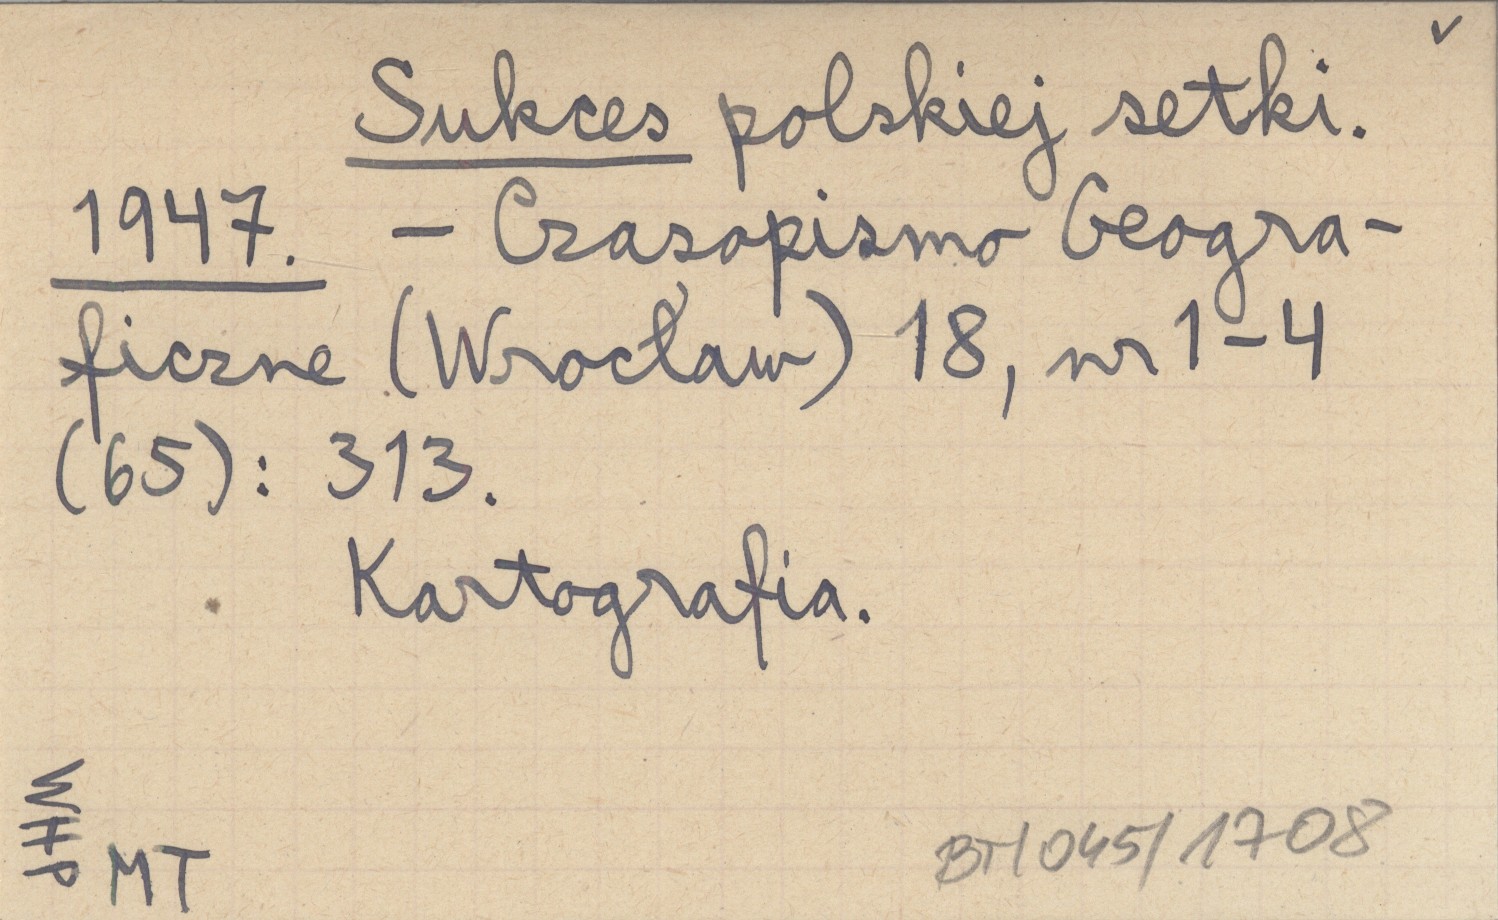 v
Sukces polskiej setki.
1947. - Czasopismo Geogra-
ficzne (Wrocław) 18, nr 1-4
(65): 313.
Kartografia.
WHP
MT
BT/045/1708